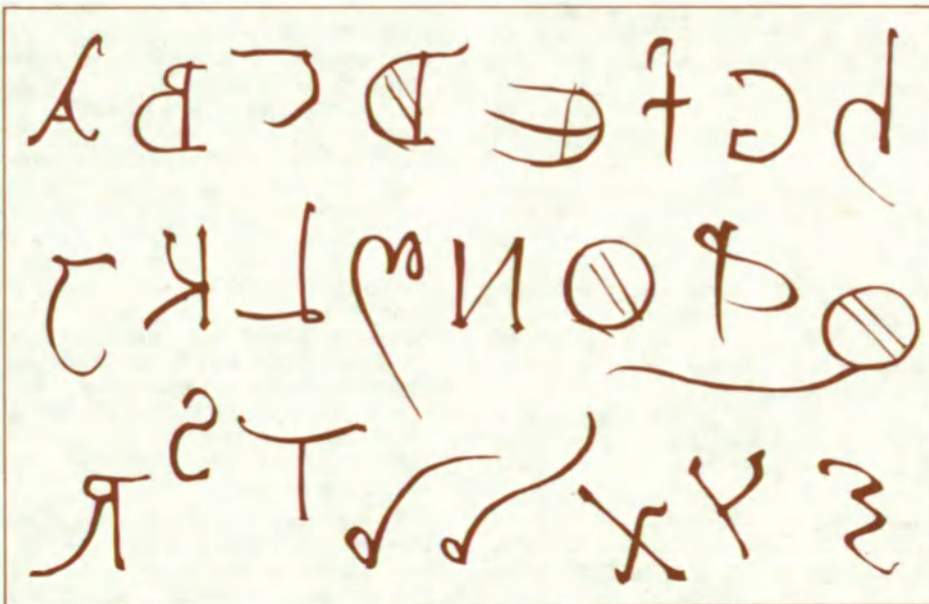 A B C D E f G h
J K L M N O P Q
R S T X Y Z